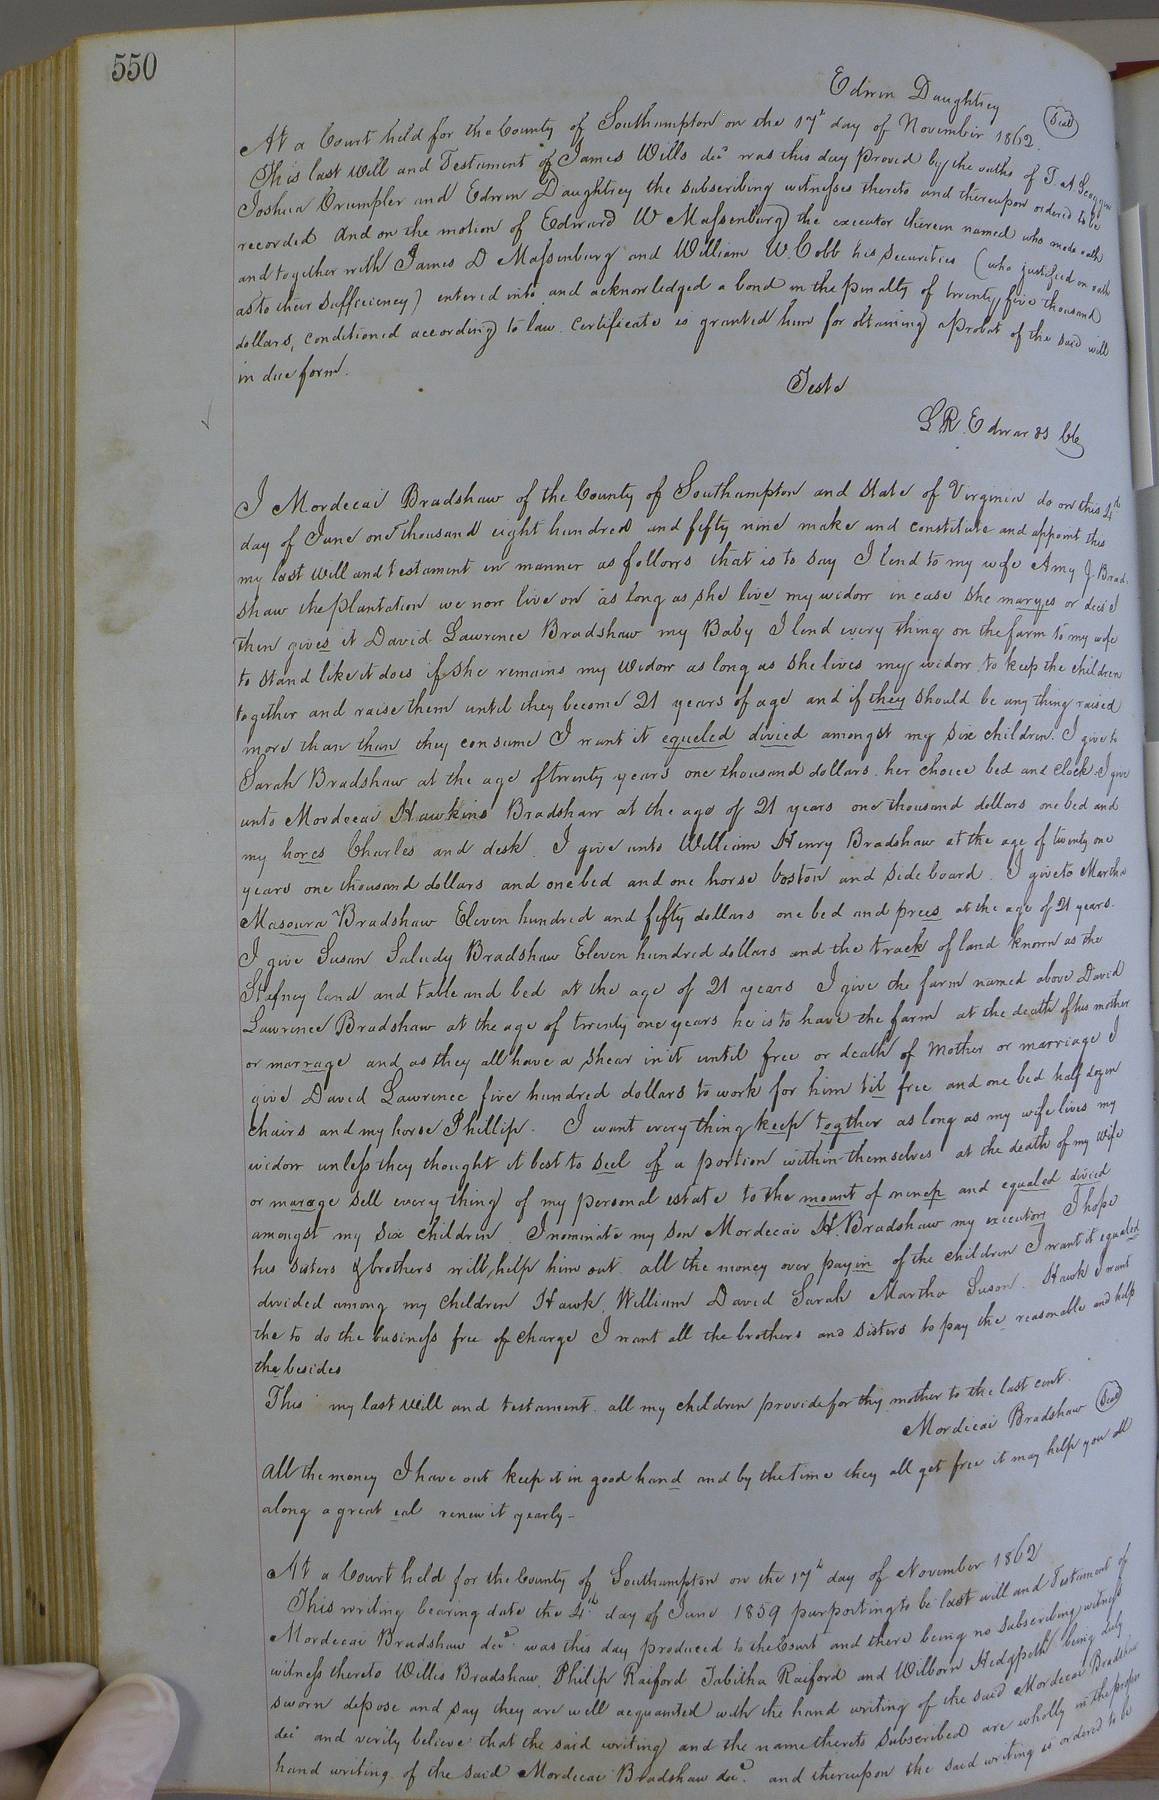 550
Edwin Daughtrey
Seal
At a Court held for the County of Southampton on the 17th day of November 1862.
This last will and Testament of James Wills decd was this day proved by the oaths of T. A.
Joshua Crumpler and Edwin Daughtrey the subscribing witnesses thereto and thereupon ordered to be
recorded And on the motion of Edward W Massenburg the executor therein named who made oath
and together with James D Massenburg and William W. Cobb his securities (who justified on oath
as to their sufficiency) entered into and acknowledged a bond in the penalty of twenty five thousand
dollars, conditioned according to law. Certificate is granted him for obtaining a probat of the said will
in due form.
Teste
L R. Edwards Clk
I Mordecai Bradshaw of the County of Southampton and State of Virginia do on this 4th
day of June one thousand eight hundred and fifty nine make and constitute and appoint this
my last will and testament in manner as follows that is to say I lend to my wife Amy J. Brad-
shaw the plantation we now live on as long as she live my widow in case she maryes or dies I
then gives it David Lawrence Bradshaw my Baby I lend every thing on the farm to my wife
to stand like it does if she remains my widow as long as she lives my widow to keep the children
together and raise them until they become 21 years of age and if they should be any thing raised
more than than they consume I want it equeled divied amongst my six children. I give to
Sarah Bradshaw at the age of twenty years one thousand dollars. her choice bed and clock. I give
unto Mordecai Hawkins Bradshaw at the age of 21 years one thousand dollars one bed and
my hores Charles and desk. I give unto William Henry Bradshaw at the age of twenty one
years one thousand dollars and one bed and one horse boston and side board. I give to Martha
Masoura Bradshaw Eleven hundred and fifty dollars one bed and prees at the age of 21 years.
I give Susan Saludy Bradshaw Eleven hundred dollars and the track of land known as the
Stafney land and table and bed at the age of 21 years I give the farm named above David
Lawrence Bradshaw at the age of twenty one years he is to have the farm at the death of his mother
or marrage and as they all have a shear in it until free or death of Mother or marriage I
give David Lawrence five hundred dollars to work for him til free and one bed half dozen
chairs and my horse Phillip. I want every thing keep togther as long as my wife lives my
widow unless they thought it best to seel of a portion within themselves at the death of my wife
or marage sell every thing of my personal estate to the mount of and equaled divied
amongst my six children. I nominate my son Mordecai H. Bradshaw my executor I hope
his sisters & brothers will help him out all the money over payin of the children I want it equaled
divided among my children Hawk, William David Sarah Martha Susan. Hawk I want
the to do the business free of charge I want all the brothers and sisters to pay the reasonable and help
the besides
This my last will and testament. all my children provide for thy mother to the last cent.
Mordecai Bradshaw Seal
All the money I have out keep it in good hand and by the time they all get free it may help you all
along a great eal renew it yearly-
At a Court held for the County of Southampton on the 17th day of November 1862
This writing bearing date the 4th day of June 1859 purporting to be last will and Testament of
Mordecai Bradshaw decd. was this day produced to the Court and there being no subscribing witness
witness thereto Willis Bradshaw, Philip Raiford Tabitha Raiford and Wilborn Hedgpeth being duly
sworn depose and say they are well acquainted with the hand writing of the said Mordecai Bradshaw
decd and verily believe that the said writing and the name thereto subscribed are wholly in the proper
hand writing of the said Mordecai Bradshaw decd. and thereupon the said writing is ordered to be